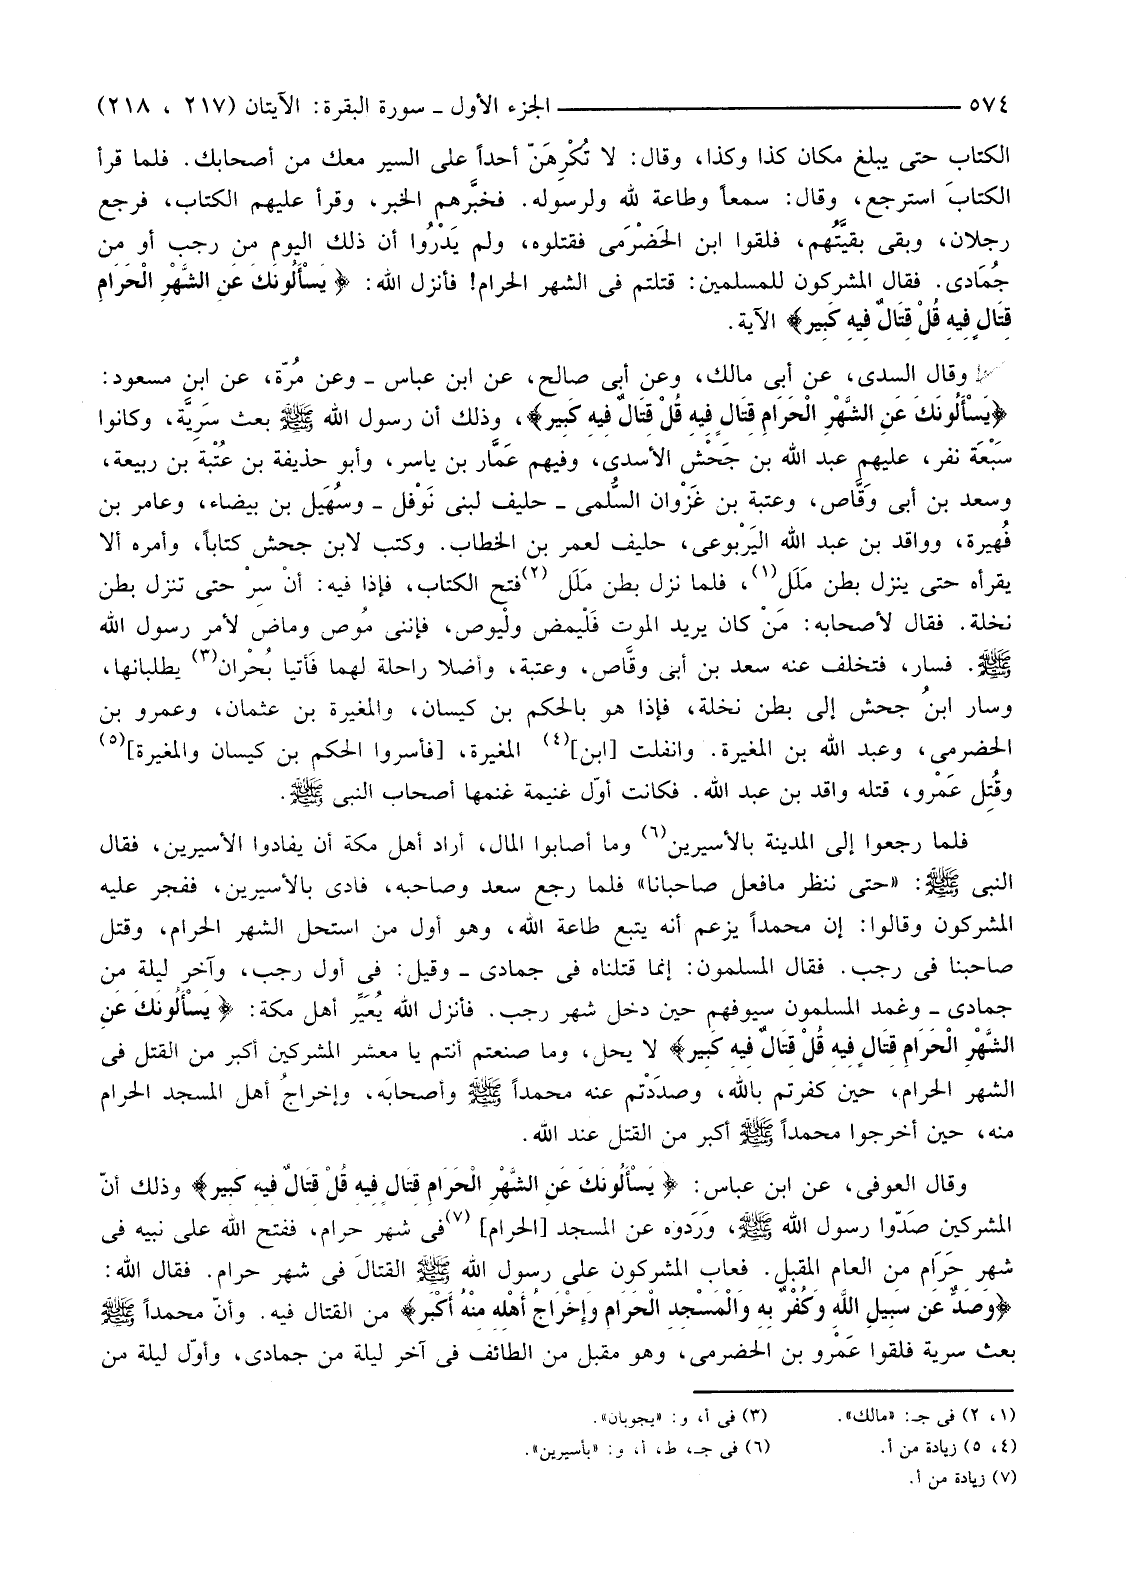 ٥٧٤ ــــــــــــــــــــ الجزء الأول ـ سورة البقرة: الآيتان (٢١٧ ، ٢١٨)
الكتاب حتى يبلغ مكان كذا وكذا، وقال: لا تُكْرِهَنّ أحداً على السير معك من أصحابك. فلما قرأ
الكتابَ استرجع، وقال: سمعاً وطاعة لله ولرسوله. فخبَّرهم الخبر، وقرأ عليهم الكتاب، فرجع
رجلان، وبقى بقيَّتُهم، فلقوا ابن الحَضْرَمى فقتلوه، ولم يَدْرُوا أن ذلك اليوم من رجب أو من
جُمَادى. فقال المشركون للمسلمين: قتلتم فى الشهر الحرام! فأنزل الله: ﴿ يَسْأَلُونَكَ عَنِ الشَّهْرِ الْحَرَامِ
قِتَالٍ فِيهِ قُلْ قِتَالٌ فِيهِ كَبِير﴾ الآية.
وقال السدى، عن أبي مالك، وعن أبى صالح، عن ابن عباس ـ وعن مُرّة، عن ابن مسعود:
﴿يَسْأَلُونَكَ عَنِ الشَّهْرِ الْحَرَامِ قِتَالٍ فِيهِ قُلْ قِتَالٌ فِيهِ كَبِير﴾، وذلك أن رسول الله ﷺ بعث سَرِيَّة، وكانوا
سَبْعَة نفر، عليهم عبد الله بن جَحْش الأسدى، وفيهم عَمَّار بن ياسر، وأبو حذيفة بن عُتْبة بن ربيعة،
وسعد بن أبى وَقَّاص، وعتبة بن غَزْوان السُّلمى ـ حليف لبنى نَوْفل ـ وسُهَيل بن بيضاء، وعامر بن
فُهيرة، وواقد بن عبد الله اليَرْبوعى، حليف لعمر بن الخطاب. وكتب لابن جحش كتاباً، وأمره ألا
يقرأه حتى ينزل بطن مَلَل(١)، فلما نزل بطن مَلَل (٢)فتح الكتاب، فإذا فيه: أنْ سِرْ حتى تنزل بطن
نخلة. فقال لأصحابه: مَنْ كان يريد الموت فَلْيمض ولْيوص، فإننى مُوص وماض لأمر رسول الله
ﷺ. فسار، فتخلف عنه سعد بن أبى وقَّاص، وعتبة، وأضلا راحلة لهما فَأتيا بُحْران(٣) يطلبانها،
وسار ابنُ جحش إلى بطن نخلة، فإذا هو بالحكم بن كيسان، والمغيرة بن عثمان، وعمرو بن
الحضرمى، وعبد الله بن المغيرة. وانفلت [ابن](٤) المغيرة، [فأسروا الحكم بن كيسان والمغيرة](٥)
وقُتِل عَمْرو، قتله واقد بن عبد الله. فكانت أوّل غنيمة غنمها أصحاب النبى ﷺ.
فلما رجعوا إلى المدينة بالأسيرين(٦) وما أصابوا المال، أراد أهل مكة أن يفادوا الأسيرين، فقال
النبى ﷺ: «حتى ننظر مافعل صاحبانا» فلما رجع سعد وصاحبه، فادى بالأسيرين، ففجر عليه
المشركون وقالوا: إن محمداً يزعم أنه يتبع طاعة الله، وهو أول من استحل الشهر الحرام، وقتل
صاحبنا فى رجب. فقال المسلمون: إنما قتلناه فى جمادى ـ وقيل: فى أول رجب، وآخر ليلة من
جمادى ـ وغمد المسلمون سيوفهم حين دخل شهر رجب. فأنزل الله يُعَيِّر أهل مكة: ﴿ يَسْأَلُونَكَ عَنِ
الشَّهْرِ الْحَرَامِ قِتَالٍ فِيهِ قُلْ قِتَالٌ فِيهِ كَبِير﴾ لا يحل، وما صنعتم أنتم يا معشر المشركين أكبر من القتل فى
الشهر الحرام، حين كفرتم بالله، وصدَدْتم عنه محمداً ﷺ وأصحابَه، وإخراجُ أهل المسجد الحرام
منه، حين أخرجوا محمداً ﷺ أكبر من القتل عند الله.
وقال العوفى، عن ابن عباس: ﴿ يَسْأَلُونَكَ عَنِ الشَّهْرِ الْحَرَامِ قِتَالٍ فِيهِ قُلْ قِتَالٌ فِيهِ كَبِير﴾ وذلك أنّ
المشركين صَدّوا رسول الله ﷺ، وَرَدوه عن المسجد [الحرام] (٧)فى شهر حرام، ففتح الله على نبيه فى
شهر حَرَام من العام المقبل. فعاب المشركون على رسول الله ﷺ القتالَ فى شهر حرام. فقال الله:
﴿وَصَدٌّ عَن سَبِيلِ اللَّهِ وَكُفْرٌ بِهِ وَالْمَسْجِدِ الْحَرَامِ وَإِخْرَاجُ أَهْلِهِ مِنْهُ أَكْبَر﴾ من القتال فيه. وأنّ محمداً ﷺ
بعث سرية فلقوا عَمْرو بن الحضرمى، وهو مقبل من الطائف فى آخر ليلة من جمادى، وأوّل ليلة من
(١، ٢) فى جـ: «مالك». (٣) فى أ، و: «يجوبان».
(٤، ٥) زيادة من أ. (٦) فى جـ، ط، أ، و: «بأسيرين».
(٧) زيادة من أ.